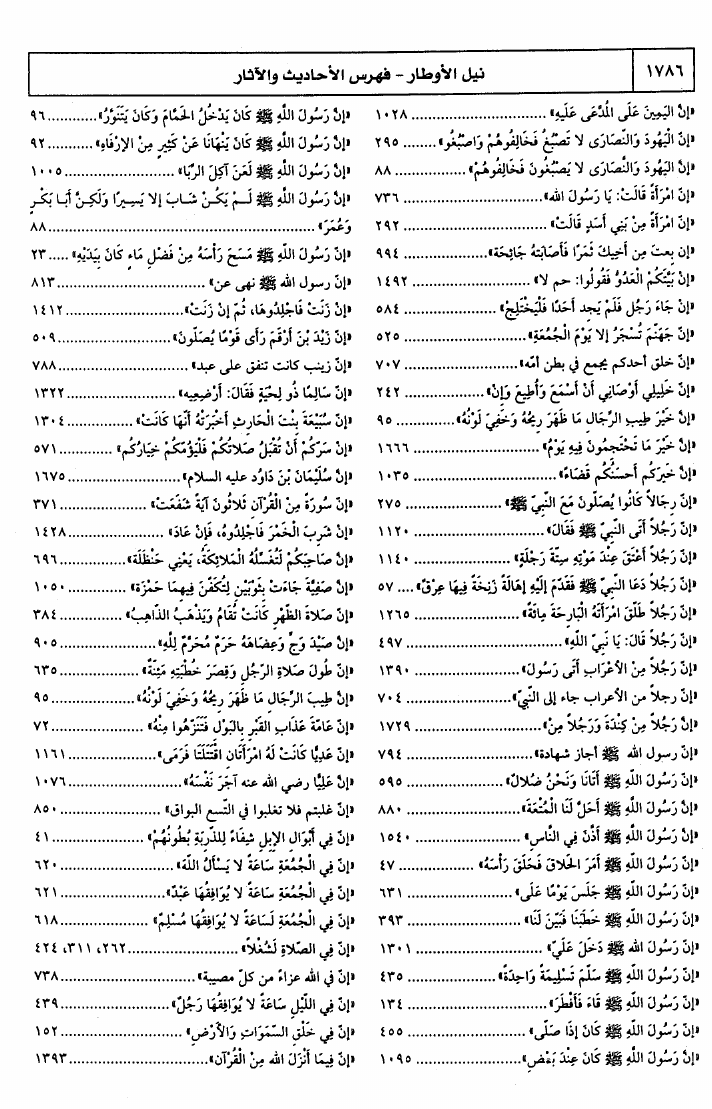 ١٧٨٦
نيل الأوطار - فهرس الأحاديث والآثار
«إنَّ اليَمِينَ عَلَى المُدَّعَى عَلَيْهِ» ........ ١٠٢٨
«إنَّ الْيَهُودَ وَالنَّصَارَى لا تَصْبُغُ فَخَالِفُوهُمْ وَاصْبُغُو» ........ ٢٩٥
«إنَّ الْيَهُودَ وَالنَّصَارَى لا يَصْبُغُونَ فَخَالِفُوهُمْ» ........ ٨٨
«إنَّ امْرَأَةً قَالَتْ: يَا رَسُولَ الله» ........ ٧٣٦
«إنَّ امْرَأَةً مِنْ بَنِي أَسَدٍ قَالَتْ» ........ ٢٩٢
«إنْ بِعتَ مِن أَخِيكَ تَمْرًا فَأَصَابَتْهُ جَائِحَة» ........ ٩٩٤
«إنْ بَيَّتَكُمْ الْعَدُوُّ فَقُولُوا: حم لا» ........ ١٤٩٢
«إنْ جَاءَ رَجُل فَلَمْ يَجِد أَحَدًا فَلْيَخْتَلِجْ» ........ ٥٨٤
«إنَّ جَهَنَّمَ تُسْجَرُ إلا يَوْمَ الْجُمُعَةِ» ........ ٥٢٥
«إنَّ خلق أحدكم يجمع في بطن أمّه» ........ ٧٠٧
«إنَّ خَلِيلِي أَوْصَانِي أَنْ أَسْمَعَ وَأُطِيعَ وَإِنْ» ........ ٢٤٢
«إنَّ خَيْرَ طِيبِ الرِّجَالِ مَا ظَهَرَ رِيحُهُ وَخَفِيَ لَوْنُهُ» ........ ٩٥
«إنَّ خَيْرَ مَا تَحْتَجِمُونَ فِيهِ يَوْمُ» ........ ١٦٦٦
«إنَّ خَيرَكم أَحسَنُكُم قَضَاءً» ........ ١٠٣٥
«إنَّ رِجالاً كَانُوا يُصَلُّونَ مَعَ النَّبِيِّ ﷺ» ........ ٢٧٥
«إنَّ رَجُلاً أَتَى النَّبِيَّ ﷺ فَقَالَ» ........ ١١٢٠
«إنَّ رَجُلاً أَعْتَقَ عِنْدَ مَوْتِهِ سِتَّةَ رَجْلَةٍ» ........ ١١٤٠
«إنَّ رَجُلاً دَعَا النَّبِيَّ ﷺ فَقَدَّمَ إلَيْهِ إهَالَةً زَنِخَةً فِيهَا عِرْقٌ» .... ٥٧
«إنَّ رَجُلاً طَلَّقَ امْرَأَتَهُ الْبَارِحَةَ مِائَةً» ........ ١٢٦٥
«إنَّ رَجُلاً قَالَ: يَا نَبِيَّ اللهِ» ........ ٤٩٧
«إنَّ رَجُلاً مِنْ الأَعْرَابِ أَتَى رَسُولَ» ........ ١٣٩٠
«إنَّ رجلا من الأعراب جاء إلى النَّبِيِّ» ........ ٧٠٤
«إنَّ رَجُلاً مِنْ كِنْدَةَ وَرَجُلاً مِنْ» ........ ١٧٢٩
«إنَّ رسول الله ﷺ أجاز شهادة» ........ ٧٩٤
«إنَّ رَسُولَ اللَّهِ ﷺ أَتَانَا وَنَحْنُ ضُلالٌ» ........ ٥٩٥
«إنَّ رَسُولَ اللَّهِ ﷺ أَحَلَّ لَنَا الْمُتْعَةَ» ........ ٨٨٠
«إنَّ رَسُولَ اللَّهِ ﷺ أَذَّنَ فِي النَّاسِ» ........ ١٥٤٠
«إنَّ رَسُولَ اللَّهِ ﷺ أَمَرَ الحَلاقَ فَحَلَّقَ رَأْسَهُ» ........ ٤٧
«إنَّ رَسُولَ اللَّهِ ﷺ جَلَسَ يَوْمًا عَلَى» ........ ٦٣١
«إنَّ رَسُولَ اللَّهِ ﷺ خَطَبَنَا فَبَيَّنَ لَنَا» ........ ٣٩٣
«إنَّ رَسُولَ الله ﷺ دَخَلَ عَلَيَّ» ........ ١٣٠١
«إنَّ رَسُولَ اللَّهِ ﷺ سَلَّمَ تَسْلِيمَةً وَاحِدَةً» ........ ٤٣٥
«إنَّ رَسُولَ اللَّهِ ﷺ قَاءَ فَأَفْطَرَ» ........ ١٣٤
«إنَّ رَسُولَ اللَّهِ ﷺ كَانَ إذَا صَلَّى» ........ ٤٥٥
«إنَّ رَسُولَ اللَّهِ ﷺ كَانَ عِنْدَ بَعْضِ» ........ ١٠٩٥
«إنَّ رَسُولَ اللَّهِ ﷺ كَانَ يَدْخُلُ الحَمَّامَ وَكَانَ يَتَنَوَّرُ» ........ ٩٦
«إنَّ رَسُولَ اللَّهِ ﷺ كَانَ يَنْهَانَا عَنْ كَثِيرٍ مِنْ الإِرْفَاهِ» ........ ٩٢
«إنَّ رَسُولَ اللَّهِ ﷺ لَعَنَ آكِلَ الرِّبَا» ........ ١٠٠٥
«إنَّ رَسُولَ اللَّهِ ﷺ لَمْ يَكُنْ شَابَ إلا يَسِيرًا وَلَكِنَّ أَبَا بَكْرٍ
وَعُمَرَ» ........ ٨٨
«إنَّ رَسُولَ اللَّهِ ﷺ مَسَحَ رَأْسَهُ مِنْ فَضْلِ مَاءٍ كَانَ بِيَدَيْهِ» ..... ٢٣
«إنَّ رسول الله ﷺ نهى عن» ........ ٨١٣
«إنْ زَنَتْ فَاجْلِدُوهَا، ثُمَّ إنْ زَنَتْ» ........ ١٤١٢
«إنَّ زَيْدَ بْنَ أَرْقَمَ رَأَى قَوْمًا يُصَلُّونَ» ........ ٥٠٩
«إنَّ زينب كانت تنفق على عبد» ........ ٧٨٨
«إنَّ سَالِمًا ذُو لِحْيَةٍ فَقَالَ: أَرْضِعِيه» ........ ١٣٢٢
«إنَّ سُبَيْعَةَ بِنْتَ الْحَارِثِ أَخْبَرَتْهُ أَنَّهَا كَانَتْ» ........ ١٣٠٤
«إنْ سَرَّكُمْ أَنْ تُقْبَلَ صَلاتُكُمْ فَلْيَؤُمَّكُمْ خِيَارُكُم» ........ ٥٧١
«إنَّ سُلَيْمَانَ بْنَ دَاوُد عليه السلام» ........ ١٦٧٥
«إنَّ سُورَةً مِنْ الْقُرْآنِ ثَلاثُونَ آيَةً شَفَعَتْ» ........ ٣٧١
«إنْ شَرِبَ الْخَمْرَ فَاجْلِدُوهُ، فَإِنْ عَادَ» ........ ١٤٢٨
«إنَّ صَاحِبَكُمْ لَتُغَسِّلُهُ الْمَلائِكَةُ، يَعْنِي حَنْظَلَةَ» ........ ٦٩٦
«إنَّ صَفِيَّةَ جَاءَتْ بِثَوْبَيْنِ لِتُكَفِّنَ فِيهِمَا حَمْزَةَ» ........ ١٠٥٠
«إنَّ صَلاةَ الظُّهْرِ كَانَتْ تُقَامُ وَيَذْهَبُ الذَّاهِبُ» ........ ٣٨٤
«إنَّ صَيْدَ وَجٍّ وَعِضَاهَهُ حَرَمٌ مُحَرَّمٌ لِلَّهِ» ........ ٩٠٥
«إنَّ طُولَ صَلاةِ الرَّجُلِ وَقِصَرَ خُطْبَتِهِ مَئِنَّةٌ» ........ ٦٣٥
«إنَّ طِيبَ الرِّجَالِ مَا ظَهَرَ رِيحُهُ وَخَفِيَ لَوْنُهُ» ........ ٩٥
«إنَّ عَامَّةَ عَذَابِ القَبْرِ بِالبَوْلِ فَتَنَزَّهُوا مِنْهُ» ........ ٧٢
«إنَّ عَدِيًّا كَانَتْ لَهُ امْرَأَتَانِ اقْتَتَلَتَا فَرَمَى» ........ ١١٦١
«إنَّ عَلِيًّا رضي الله عنه آجَرَ نَفْسَهُ» ........ ١٠٧٦
«إنْ غلبتم فلا تغلبوا في التّسع البواق» ........ ٨٥٠
«إنَّ فِي أَبْوَالِ الإِبِلِ شِفَاءً لِلذَّرِبَةِ بُطُونُهُمْ» ........ ٤١
«إنَّ فِي الْجُمُعَةِ سَاعَةً لا يَسْأَلُ اللَّهَ» ........ ٦٢٠
«إنَّ فِي الْجُمُعَةِ سَاعَةً لا يُوَافِقُهَا عَبْدٌ» ........ ٦٢١
«إنَّ فِي الْجُمُعَةِ لَسَاعَةً لا يُوَافِقُهَا مُسْلِمٌ» ........ ٦١٨
«إنَّ فِي الصَّلاةِ لَشُغْلاً» ........ ٢٦٢، ٣١١، ٤٢٤
«إنَّ في الله عزاءً من كلّ مصيبة» ........ ٧٣٨
«إنَّ فِي اللَّيْلِ سَاعَةً لا يُوَافِقُهَا رَجُلٌ» ........ ٤٣٩
«إنَّ فِي خَلْقِ السَّمَوَاتِ وَالأَرْضِ» ........ ١٥٢
«إنَّ فِيمَا أَنْزَلَ الله مِنْ الْقُرْآنِ» ........ ١٣٩٣